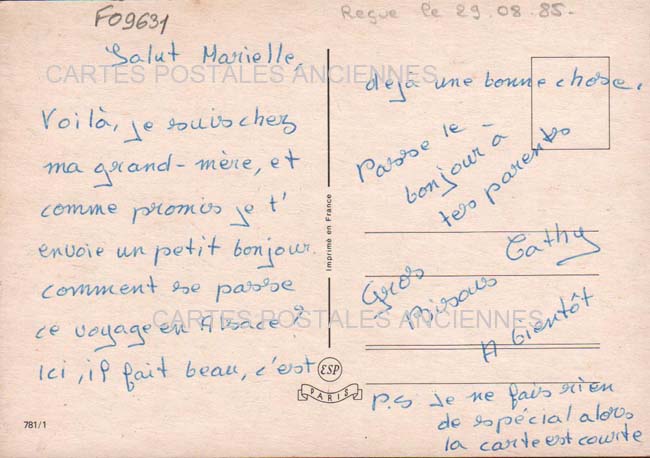 F09631
Reçue le 29.08.85-
Salut Marielle,
CARTES POSTALES ANCIENNES
Voilà, je suis chez
ma grand-mère, et
comme promis je t'
envoie un petit bonjour.
comment se passe
ce voyage en Alsace?
Ici, il fait beau, c'est
déjà une bonne chose.
Passe le
bonjour à
tes parents
Cathy
Gros
Bisous
CARTES POSTALES ANCIENNES
A bientôt
P.S Je ne fais rien
de spécial alors
la carte est courte
Imprimé en France
ESP
PARIS
781/1